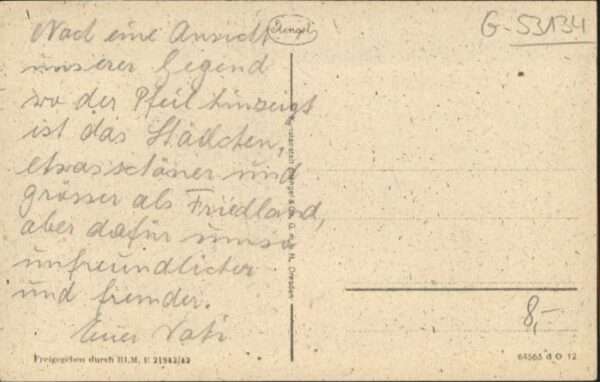 Noch eine Ansicht
unserer Gegend
wo der Pfeil hinzeigt
ist das Städchen,
etwas schöner und
grösser als Friedland,
aber dafür umso
unfreundlicher
und fremder.
Euer Vati
Freigegeben durch RLM.
Stengel
Dresden
G-53134
8,-
64565 d O 12